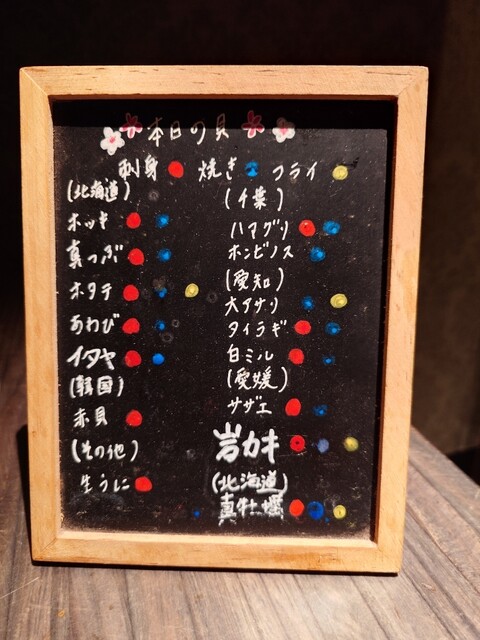 本日の貝
刺身 焼き フライ
(北海道)
ホッキ
真つぶ
ホタテ
あわび
イタヤ
(韓国)
赤貝
(その他)
生うに
(千葉)
ハマグリ
ホンビノス
(愛知)
大アサリ
タイラギ
白ミル
(愛媛)
サザエ
岩カキ
(北海道)
真牡蠣